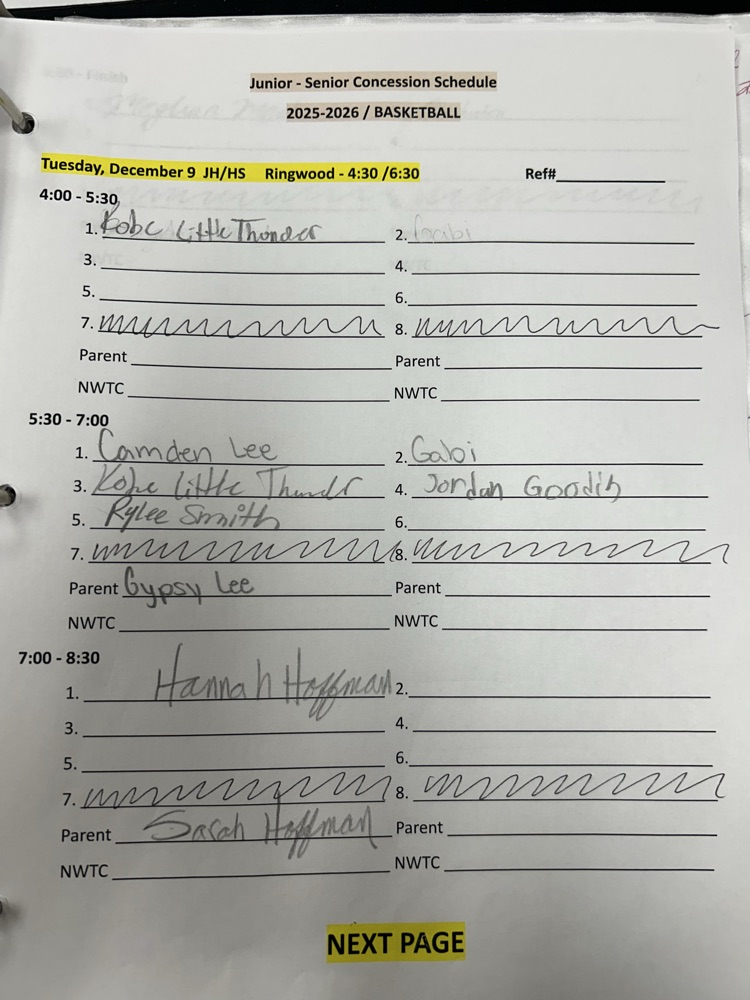 Junior - Senior Concession Schedule
2025-2026 / BASKETBALL
Tuesday, December 9 JH/HS Ringwood - 4:30 /6:30 Ref#
4:00 - 5:30
1. Kobe Little Thunder 2. Gabi
3. 4.
5. 6.
7. 8.
Parent Parent
NWTC NWTC
5:30 - 7:00
1. Camden Lee 2. Gabi
3. Kobe Little Thunder 4. Jordan
5. Rylee Smith 6.
7. 8.
Parent Gypsy Lee Parent
NWTC NWTC
7:00 - 8:30
1. Hannah Hoffman 2.
3. 4.
5. 6.
7. 8.
Parent Sarah Hoffman Parent
NWTC NWTC
NEXT PAGE